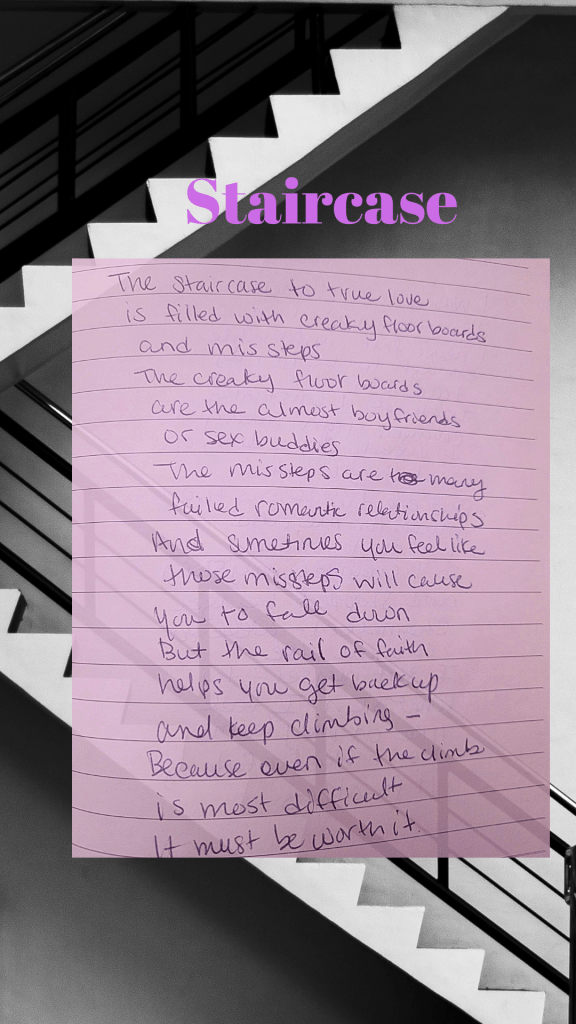 Staircase
The staircase to true love
is filled with creaky floor boards
and mis steps
The creaky floor boards
are the almost boyfriends
or sex buddies
The missteps are many
failed romantic relationships
And sometimes you feel like
those missteps will cause
you to fall down
But the rail of faith
helps you get back up
and keep climbing –
Because even if the climb
is most difficult
It must be worth it.